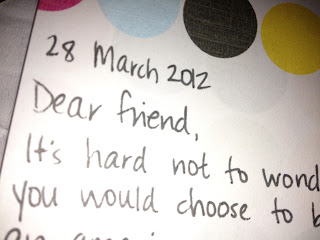 28 March 2012
Dear friend,
It's hard not to
you would choose to